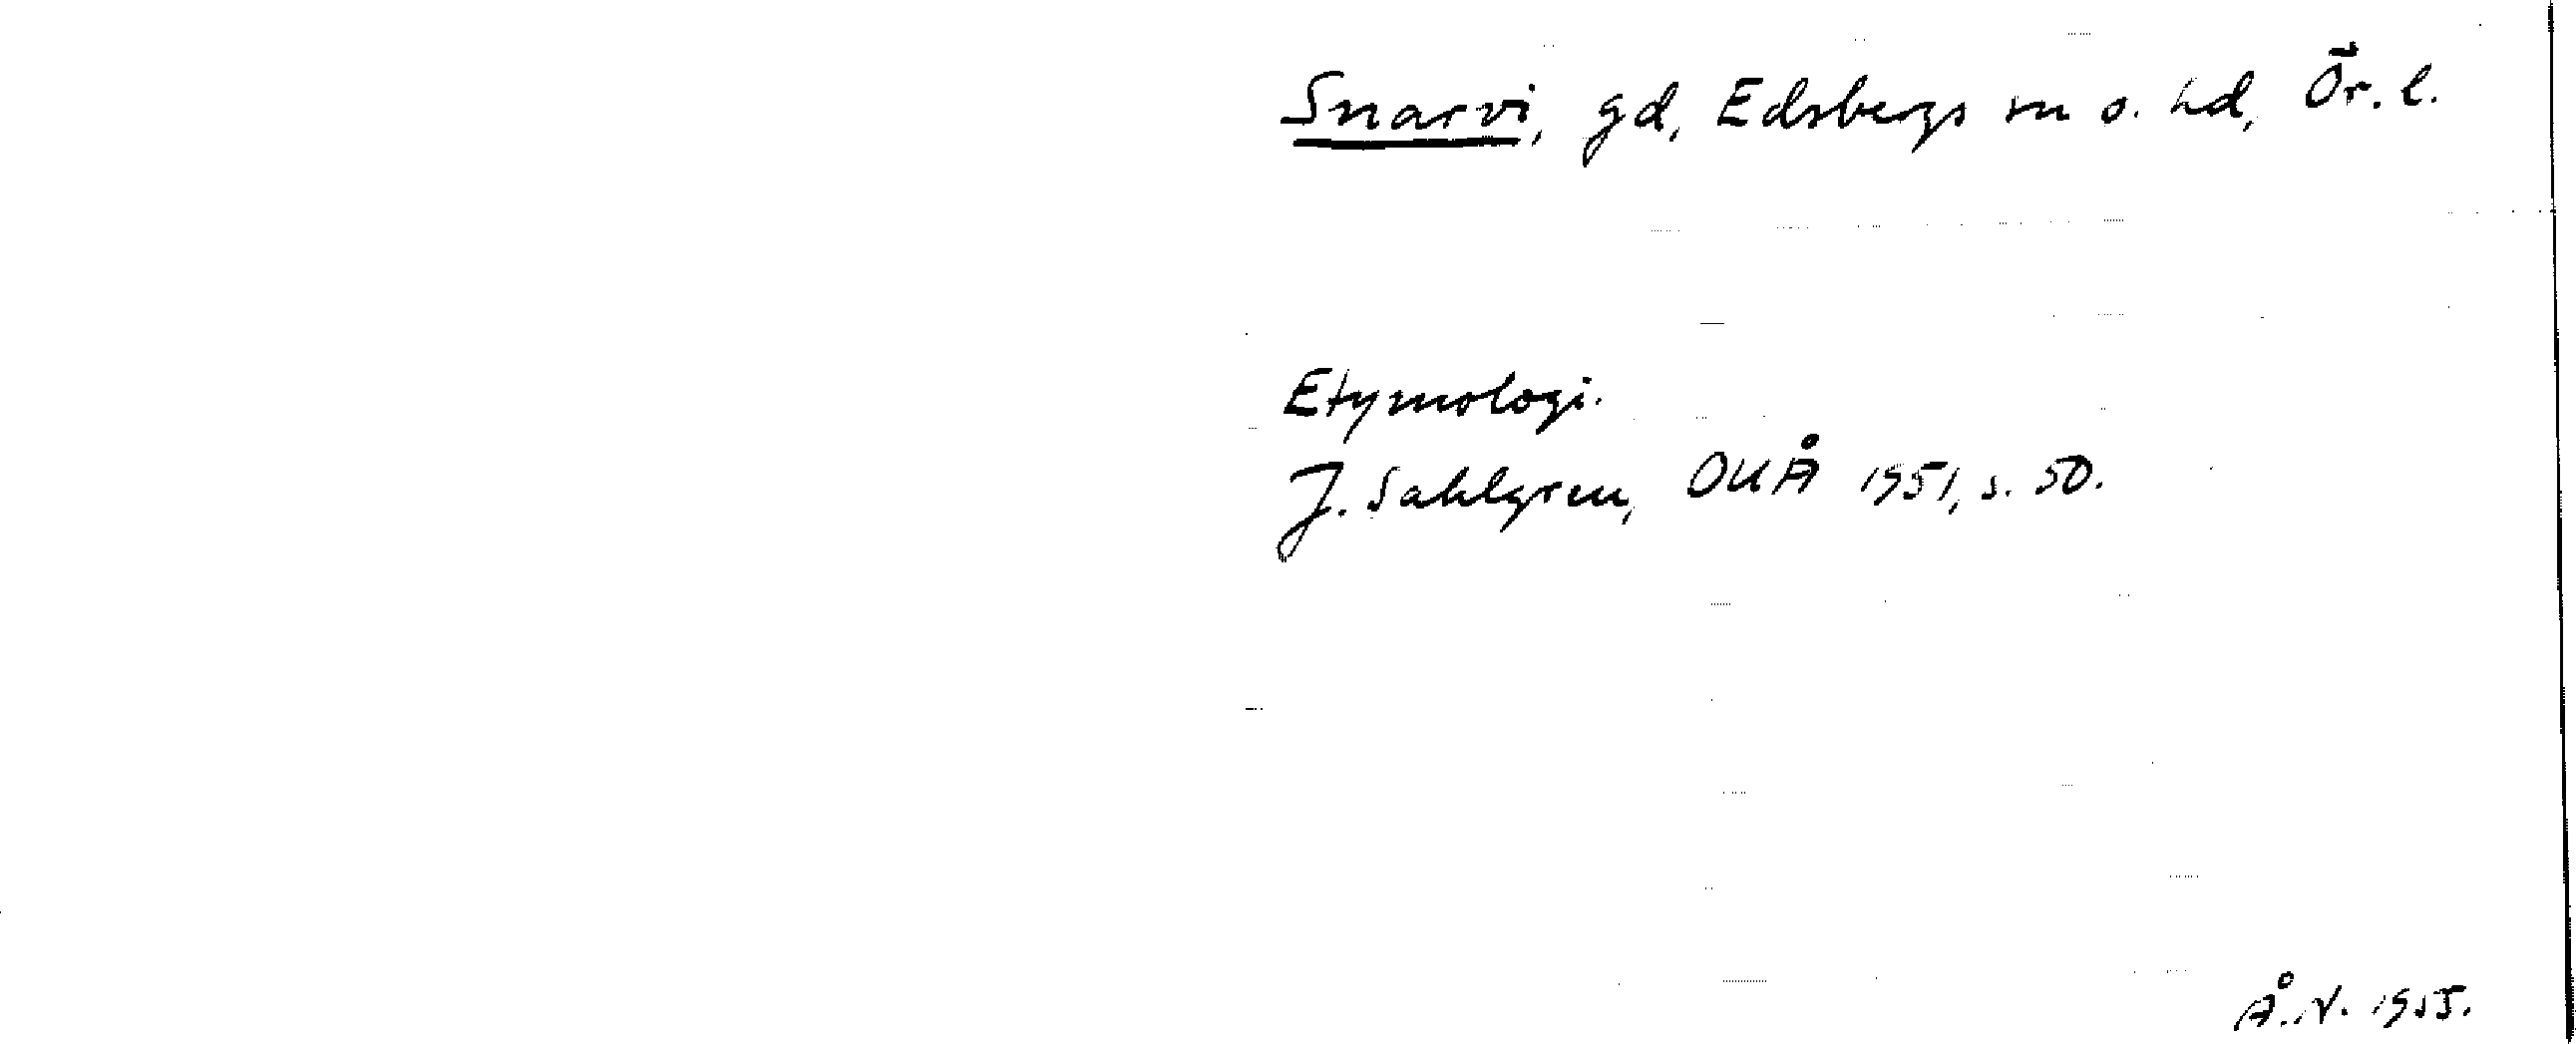 Snarvi, gd, Edsbergs sn o. hd, Ör. l.
Etymologi.
J. Sahlgren, OUÅ 1951, s. 50.
Å.N. 1955.